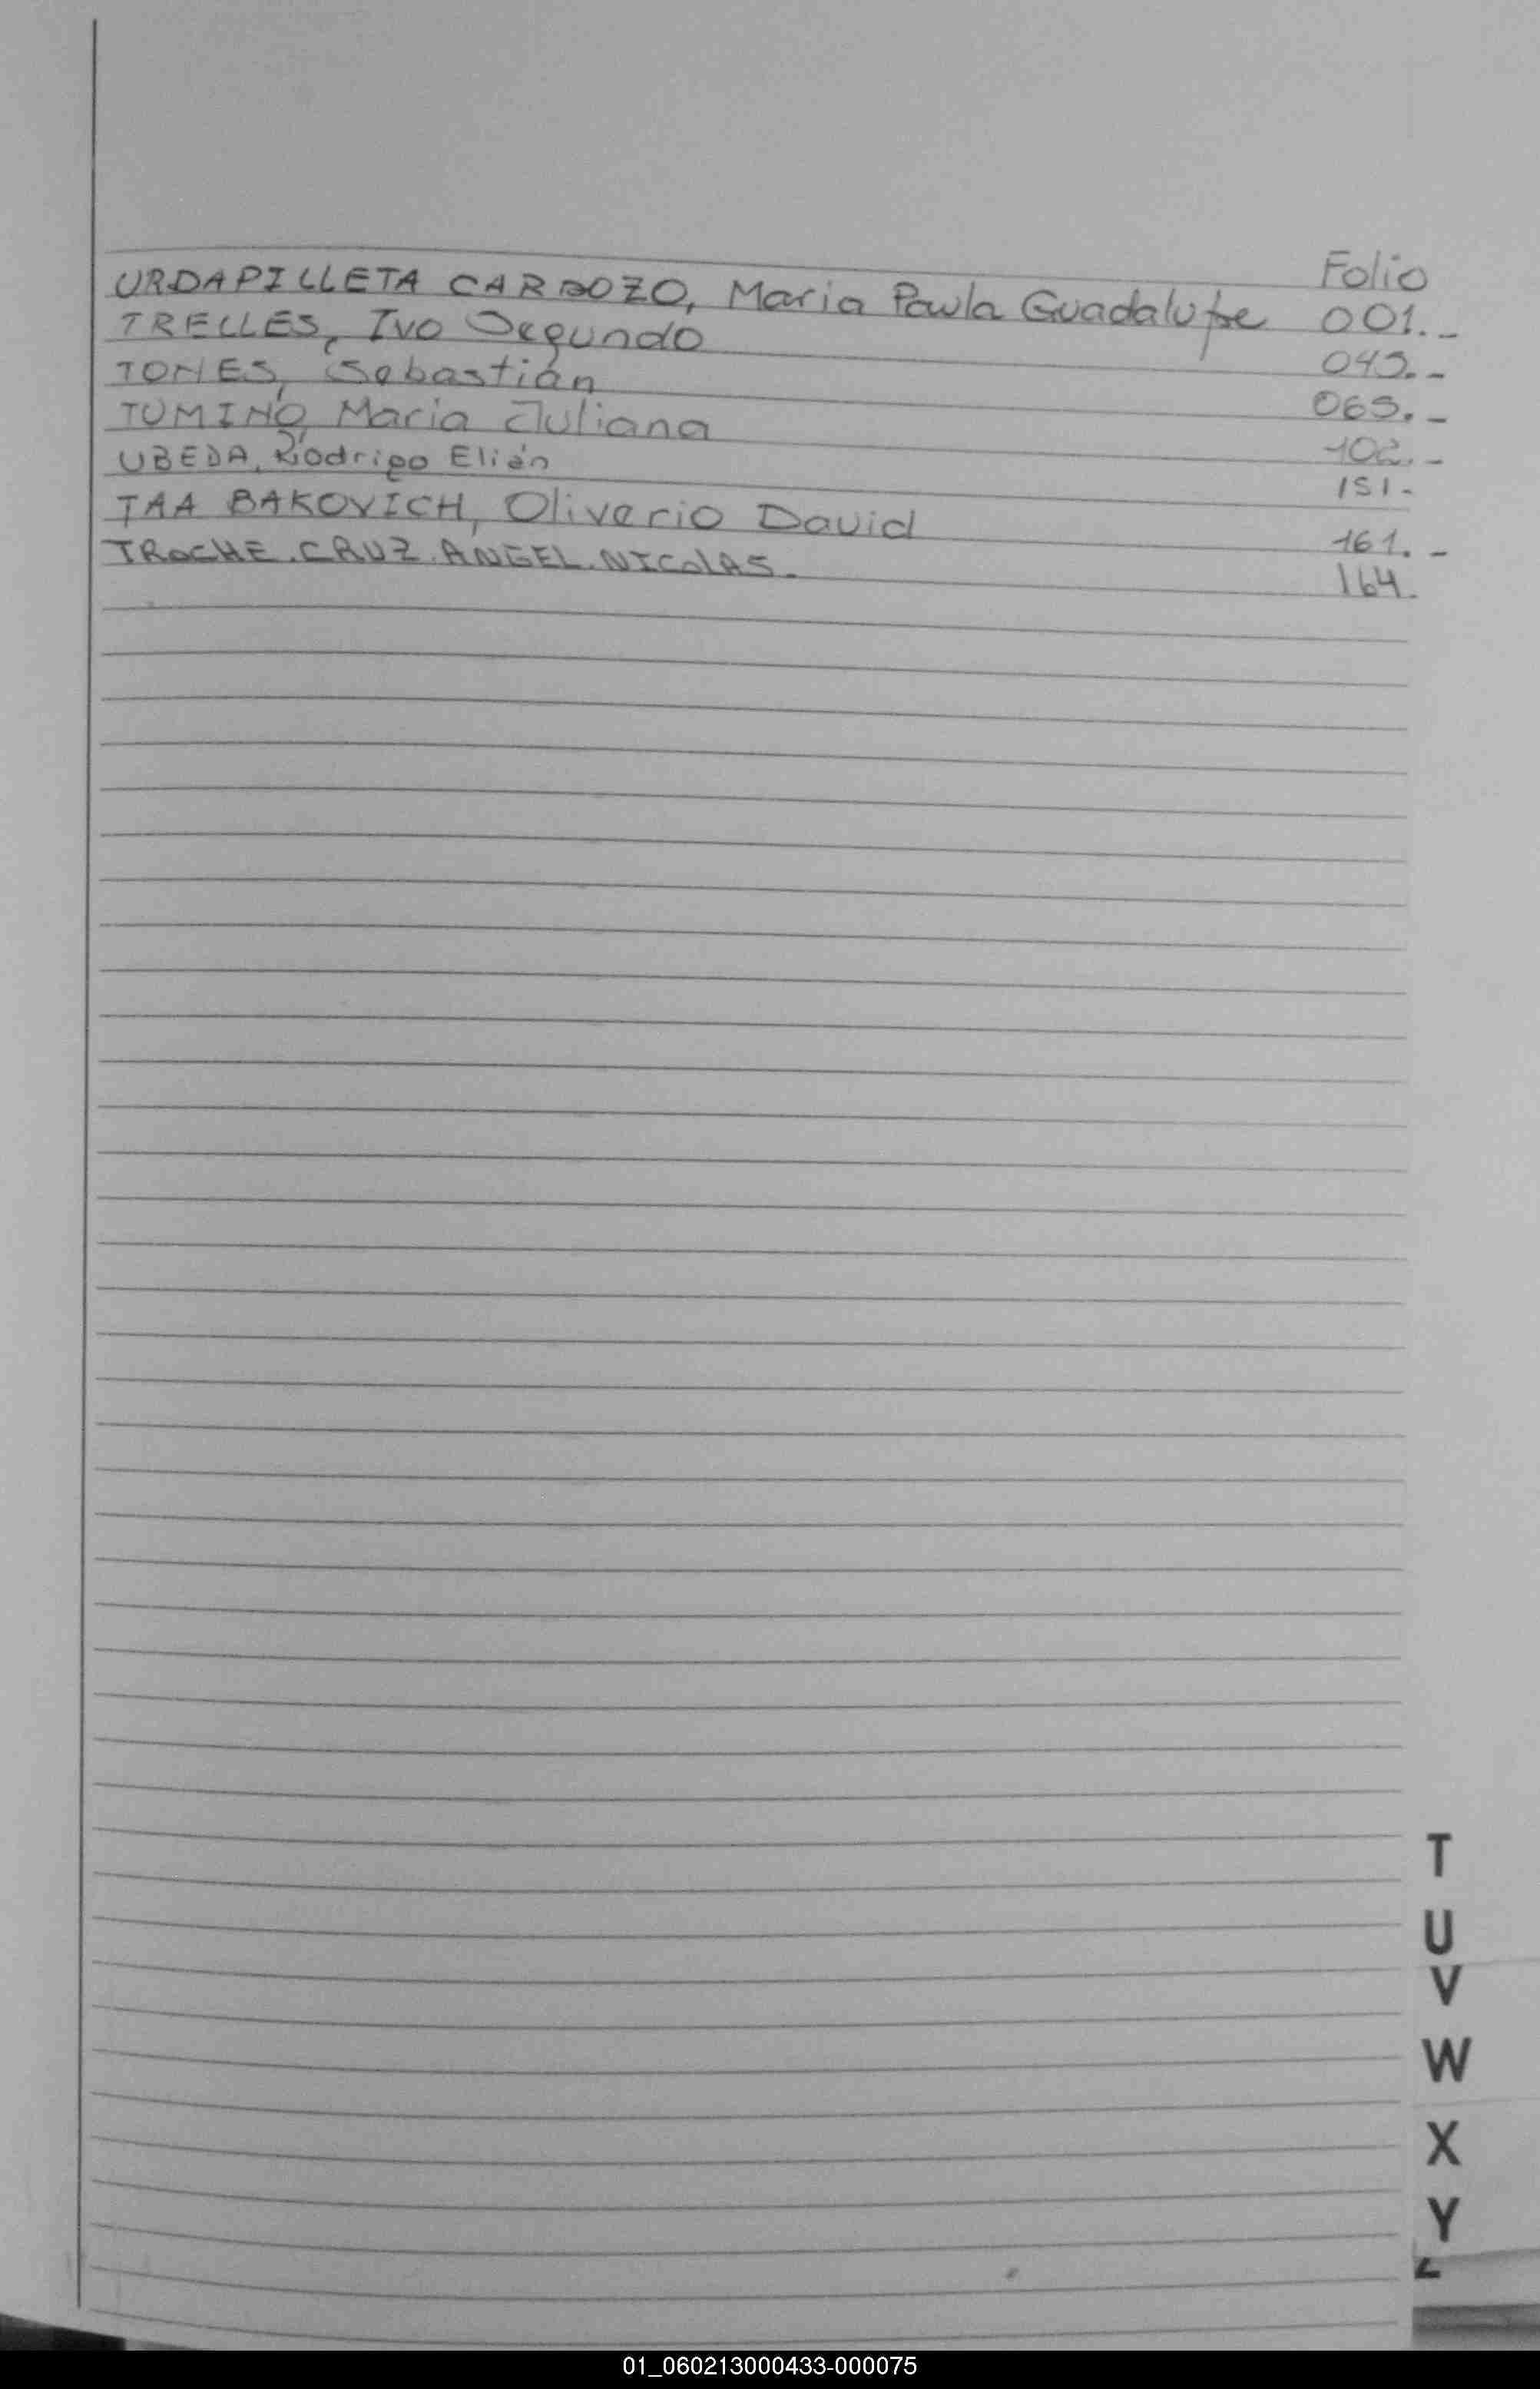 Folio
URDAPILLETA CARDOZO, Maria Paula Guadalupe 001.-
TRELLES, Ivo Segundo 045.-
TONES, Sebastián 065.-
TUMINO, Maria Juliana 102.-
UBEDA, Rodrigo Elián 151-
TAA BAKOVICH, Oliverio David 161.-
TROCHE.CRUZ.ANGEL.NICOLAS. 164.
T
U
V
W
X
Y
01_060213000433-000075